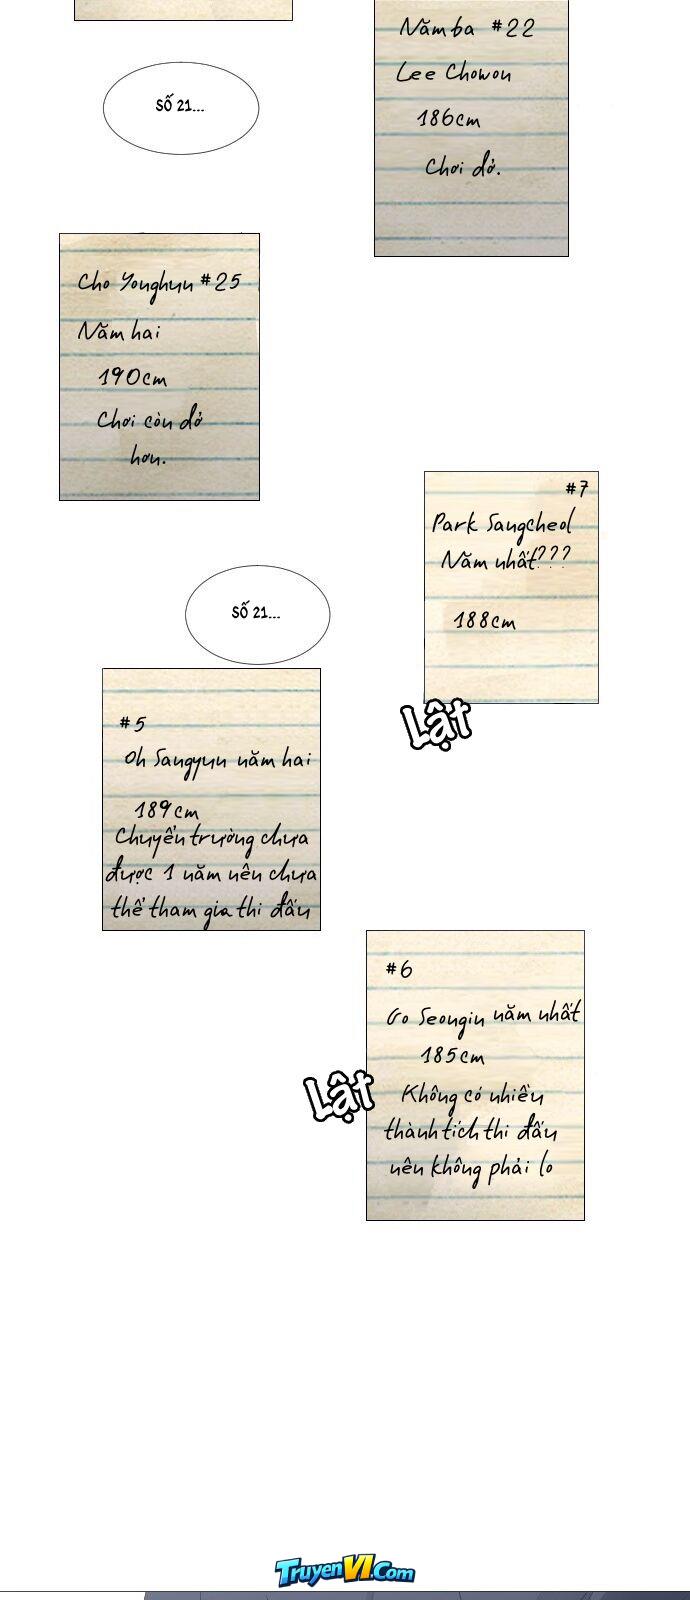 Năm ba #22
Lee Chowon
186cm
Chơi dở.
SỐ 21...
Cho Yonghun #25
Năm hai
190cm
Chơi còn dở
hơn.
#7
Park Sangcheol
Năm nhất???
188cm
SỐ 21...
Lật
#5
Oh Sangyun năm hai
189cm
Chuyển trường chưa
được 1 năm nên chưa
thể tham gia thi đấu
#6
Go Seongin năm nhất
185cm
Lật
Không có nhiều
thành tích thi đấu
nên không phải lo
TruyenVI.Com